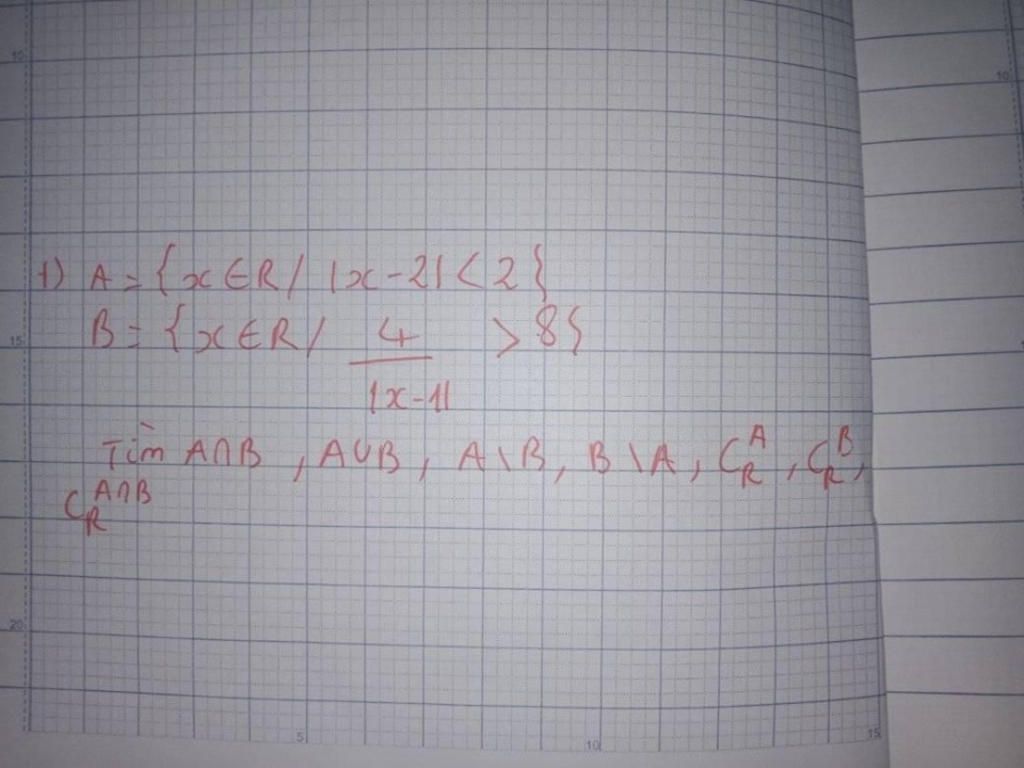 1) A = { x ∈ R / |x - 2| < 2 }
B = { x ∈ R / 4 > 8 }
|x - 1|
Tìm A∩B , A∪B , A \ B , B \ A , C_R^A , C_R^B ,
C_R^{A∩B}
15
15
20
5
10
15
10